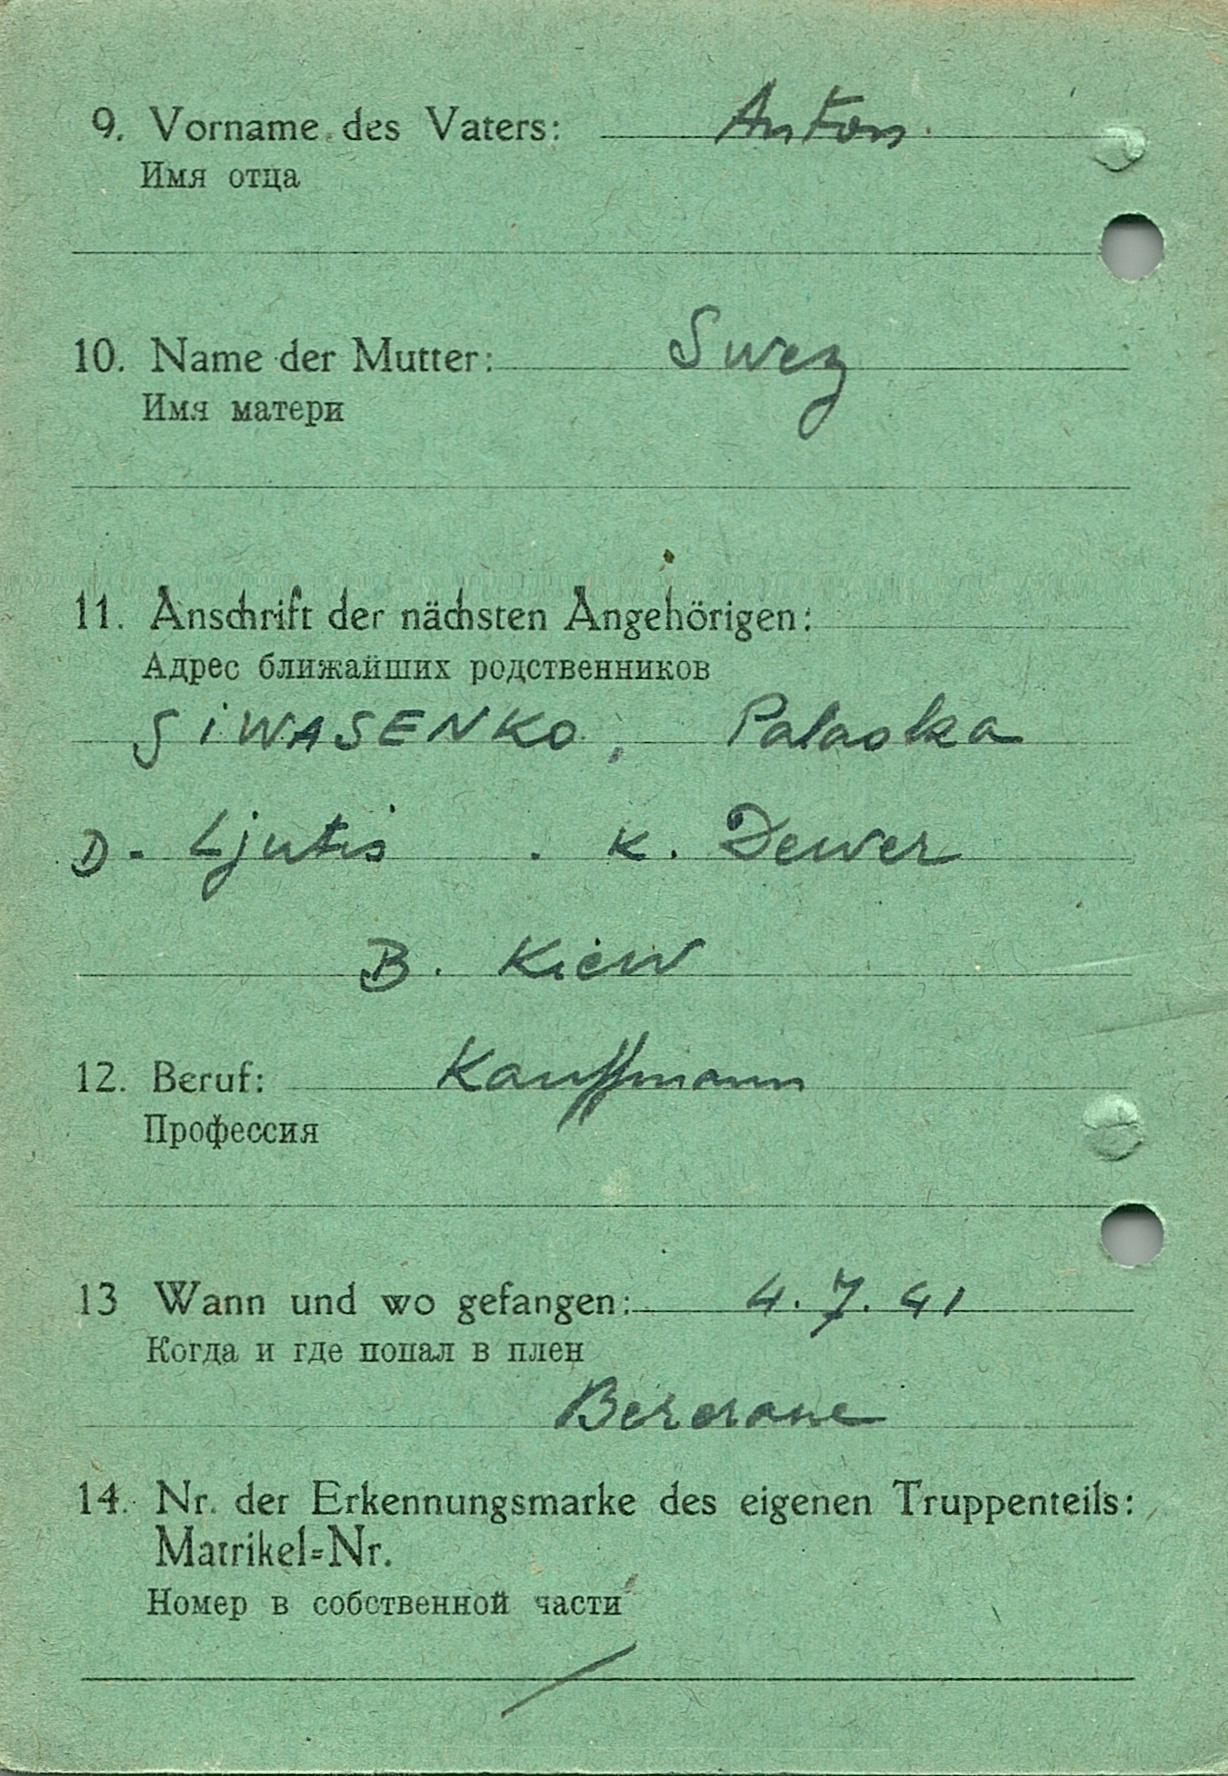 9. Vorname des Vaters: Anton
Имя отца
10. Name der Mutter: Swez
Имя матери
11. Anschrift der nächsten Angehörigen:
Адрес ближайших родственников
SIWASENKO, Palaska
D. Ljutis K. Dewer
B. Kiew
12. Beruf: Kauffmann
Профессия
13 Wann und wo gefangen: 4. 7. 41
Когда и где попал в плен
14. Nr. der Erkennungsmarke des eigenen Truppenteils:
Matrikel=Nr.
Номер в собственной части